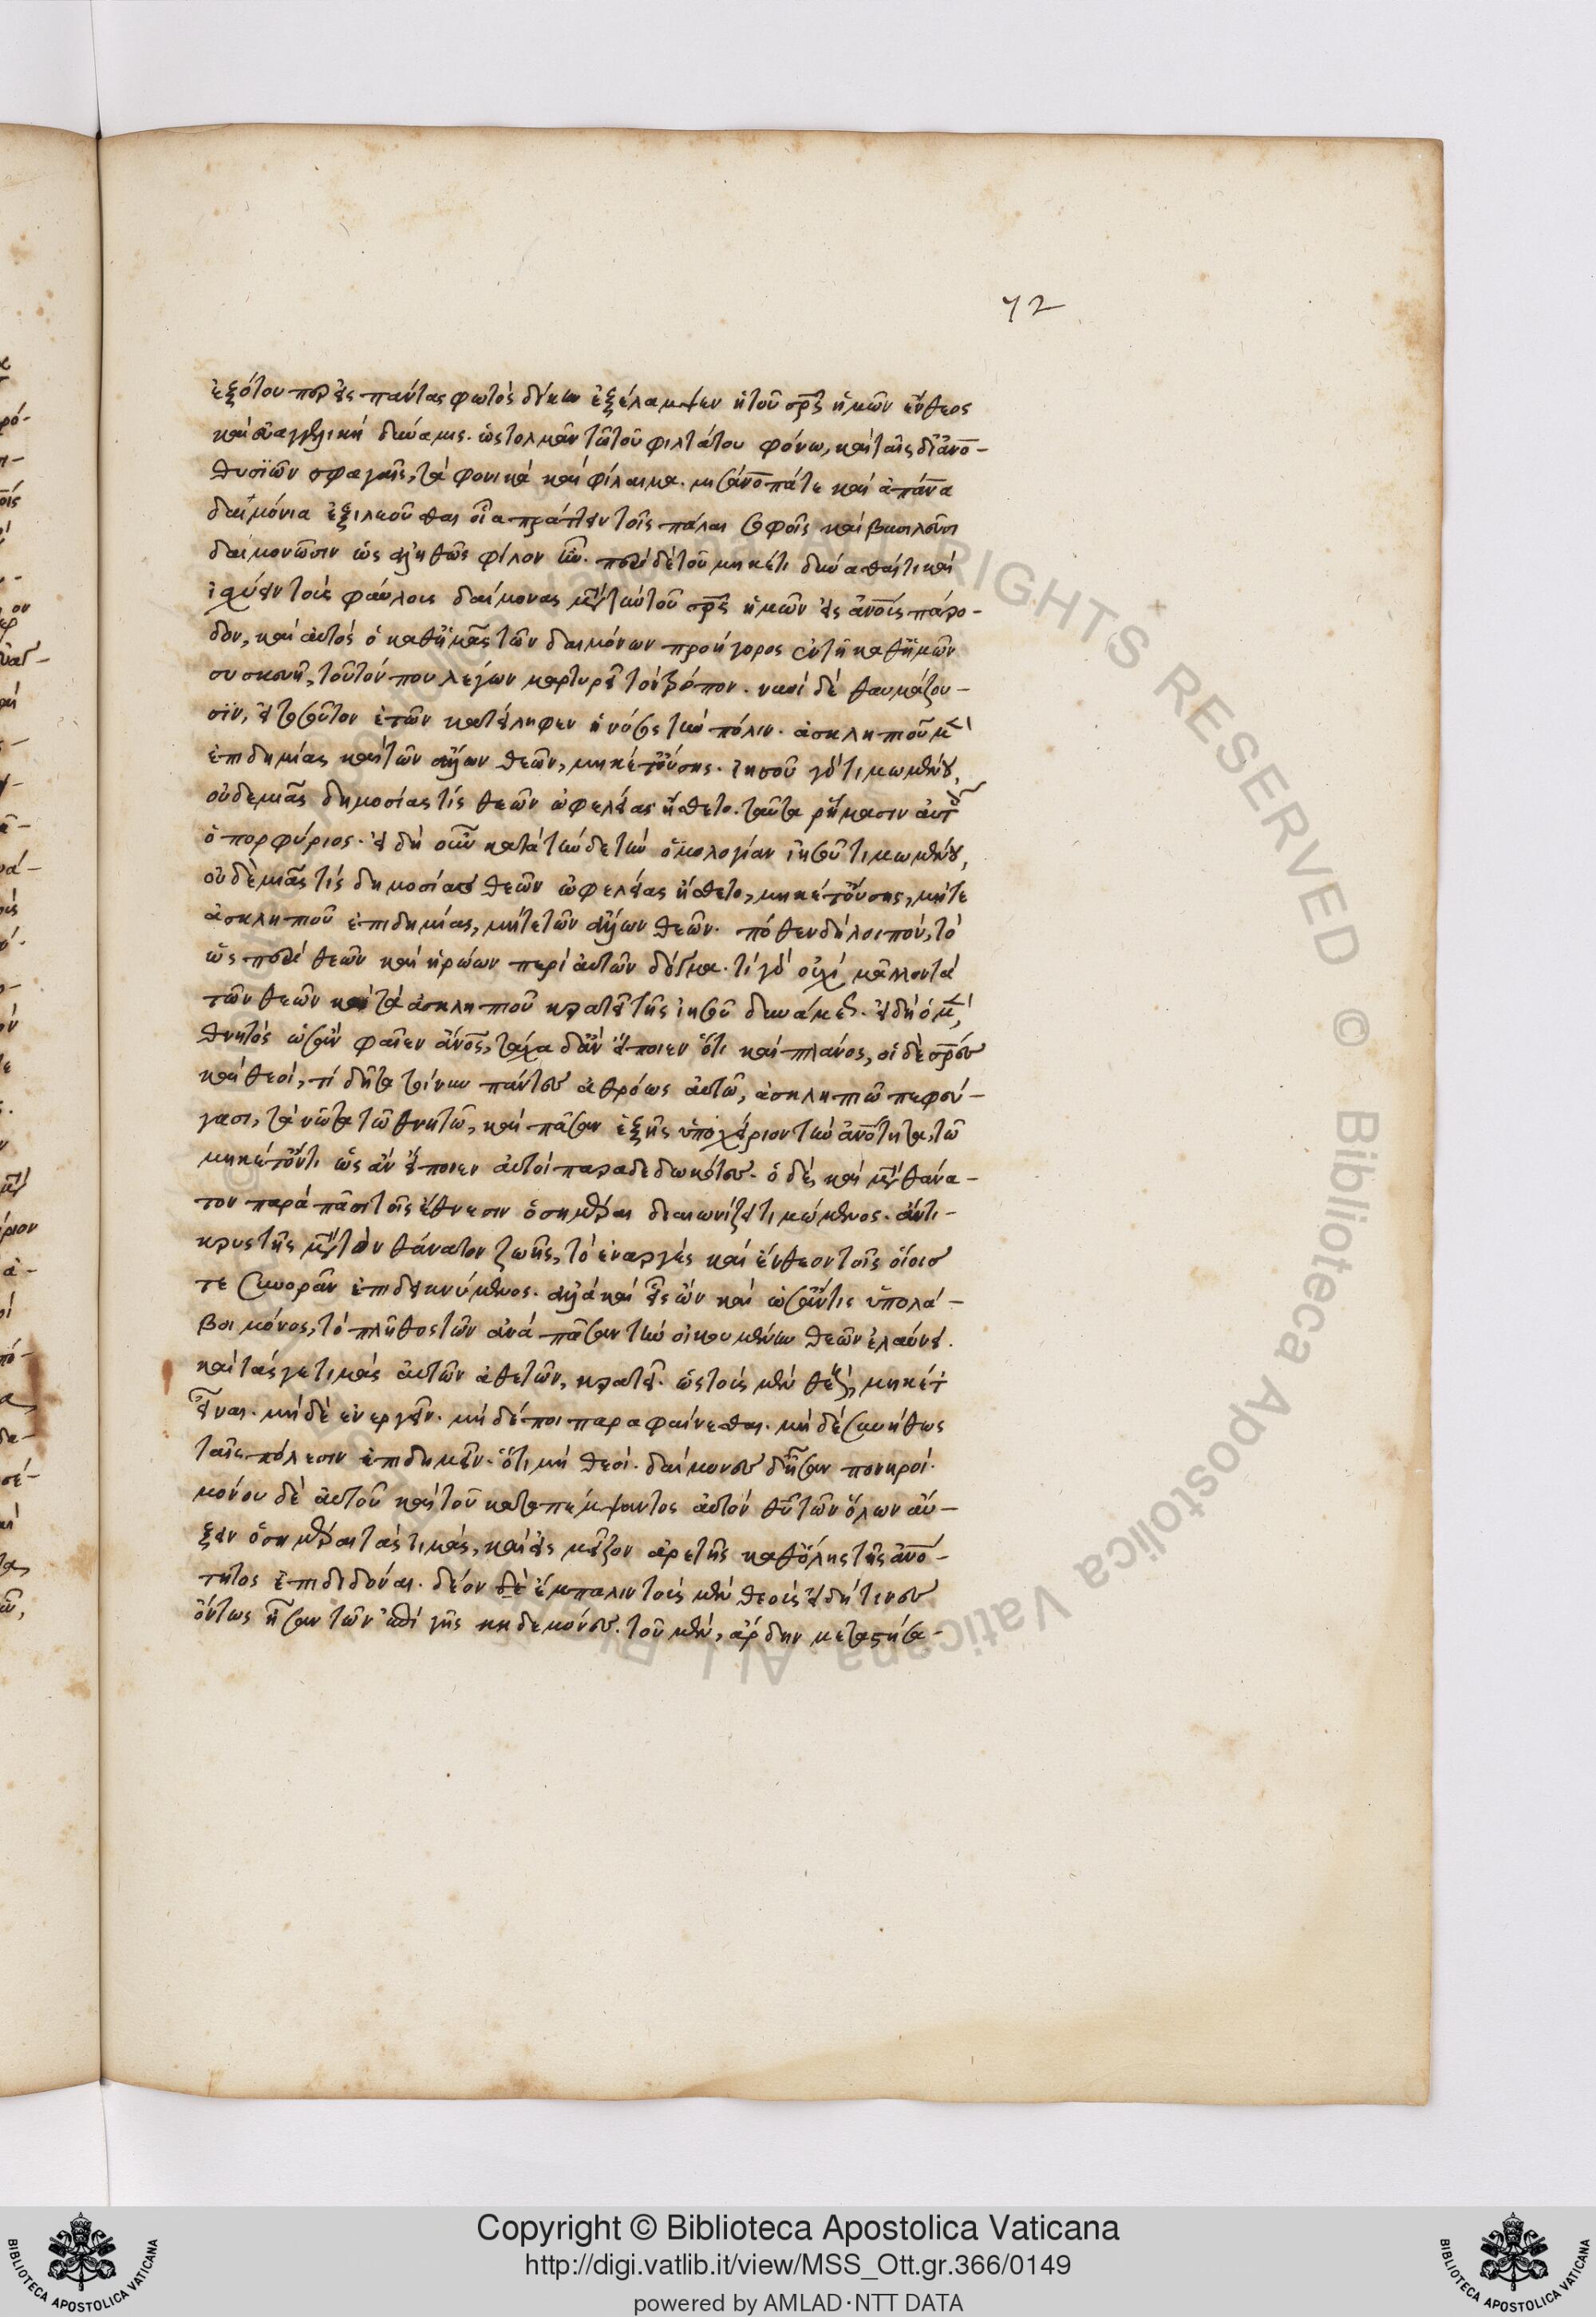 72
ἐξότου πρὸς πάντας φωτὸς δίκην ἐξέλαμψεν ἡ τοῦ σρς ἡμῶν ἔνθεος
καὶ εὐαγγελικὴ δύναμις. ὡς τολμᾶν τῶ τοῦ φιλτάτου φόνω, καὶ ταῖς δι' ἀνο-
θυσϊῶν σφαγαῖς, τὰ φονικὰ καὶ φίλαιμα. μισάνοπά τε καὶ ἀπάνα
δαιμόνια ἐξιλεοῦσθαι οἷα πράττειν τοῖς πάλαι σοφοῖς καὶ βασιλεῦσι
δαιμονῶσιν ὡς ἀληθῶς φίλον ἦν. περὶ δὲ τοῦ μηκέτι δύνασθαί τι καὶ
ἰσχύειν τοὺς φαύλους δαίμονας μετὰ τὴν τοῦ σρς ἡμῶν εἰς ἀνους πάρο-
δον, καὶ αὐτὸς ὁ καθ' ἡμᾶς τῶν δαιμόνων προήγορος ἐν τῆ καθ' ἡμῶν
συσκευῆ, τοῦτόν που λέγων μαρτυρεῖ τὸν τρόπον. νυνὶ δὲ θαυμάζου-
σϊν, εἰ τοσοῦτον ἐτῶν κατείληφεν ἡ νόσος τὴν πόλιν. ἀσκληπιοῦ μὲν
ἐπιδημίας καὶ τῶν ἄλλων θεῶν, μηκέτ' οὔσης. ἰησοῦ γὰρ τιμωμένου,
οὐδεμιᾶς δημοσίας τὶς θεῶν ὠφελείας ἤσθετο. ταῦτα ῥήμασιν αὐτοῖς
ὁ πορφύριος. εἰ δὴ οὖν κατὰ τήνδε τὴν ὁμολογίαν ἰησοῦ τιμωμένου,
οὐδεμιᾶς τὶς δημοσίας θεῶν ὠφελείας ἤσθετο, μηκέτ' οὔσης, μήτε
ἀσκληπιοῦ ἐπιδημίας, μήτε τῶν ἄλλων θεῶν. πόθεν δὴ λοιπὸν, τὸ
ὡς περὶ θεῶν καὶ ἡρώων περὶ αὐτῶν δόγμα. τί γὰρ οὐχὶ μᾶλλον τὰ
τῶν θεῶν καὶ τὰ ἀσκληπιοῦ κρατεῖ τῆς ἰησοῦ δυνάμεως. εἰ δὴ ὁ μὲν,
θνητὸς ὡς ἂν φαῖεν ἀνος, τάχα δ' ἂν εἴποιεν ὅτι καὶ πλάνος, οἱ δὲ σρες
καὶ θεοὶ, τί δῆτα φεύγουσιν πάντες ἀθρόως αὐτῶ, ἀσκληπιῶ πεφεύ-
γασι, τὰ νῶτα τῶ θνητῶ, καὶ πᾶσαν ἑξῆς ὑποχείριον τὴν ἀνοτητα, τῶ
μηκέτ' ὄντι ὡς ἂν εἴποιεν αὐτοὶ παραδεδωκότες. ὁ δὲ, καὶ μετὰ θάνα-
τον παρὰ πᾶσι τοῖς ἔθνεσιν ὁσημέραι διαιωνίζει τιμώμενος. ἄντι-
κρυς τῆς μετὰ τὸν θάνατον ζωῆς, τὸ ἐναργὲς καὶ ἔνθεον τοῖς οἵοις
τε συνορᾶν ἐπιδεικνύμενος. ἀλλὰ καὶ εἷς ὢν καὶ ὡς ἄν τις ὑπολά-
βοι μόνος, τὸ πλῆθος τῶν ἀνὰ πᾶσαν τὴν οἰκουμένην θεῶν ἐλαύνει.
καὶ τάς γε τιμὰς αὐτῶν ἀθετῶν, κρατεῖ. ὡς τοὺς μὲν θεοὺς, μηκέτ'
εἶναι. μὴ δὲ ἐνεργεῖν. μὴ δέ ποι παραφαίνεσθαι. μὴ δὲ συνήθως
ταῖς πόλεσιν ἐπιδημεῖν. ὅτι μὴ θεοὶ. δαίμονες δ' ἦσαν πονηροί.
μόνου δὲ αὐτοῦ καὶ τοῦ καταπέμψαντος αὐτὸν θυ τῶν ὅλων αὔ-
ξειν ὁσημέραι τὰς τιμὰς, καὶ εἰς μεῖζον ἀρετῆς καθ' ὅλης τῆς ἀνο-
τητος ἐπιδιδόναι. δέον δὲ ἔμπαλιν τοὺς μὲν θεοὺς εἰ δή τινες
ὄντως ἦσαν τῶν ἐπὶ γῆς κηδεμόνες. τοῦ μὲν, ἄρδην μεταστήσα-
Copyright © Biblioteca Apostolica Vaticana
http://digi.vatlib.it/view/MSS_Ott.gr.366/0149
powered by AMLAD·NTT DATA